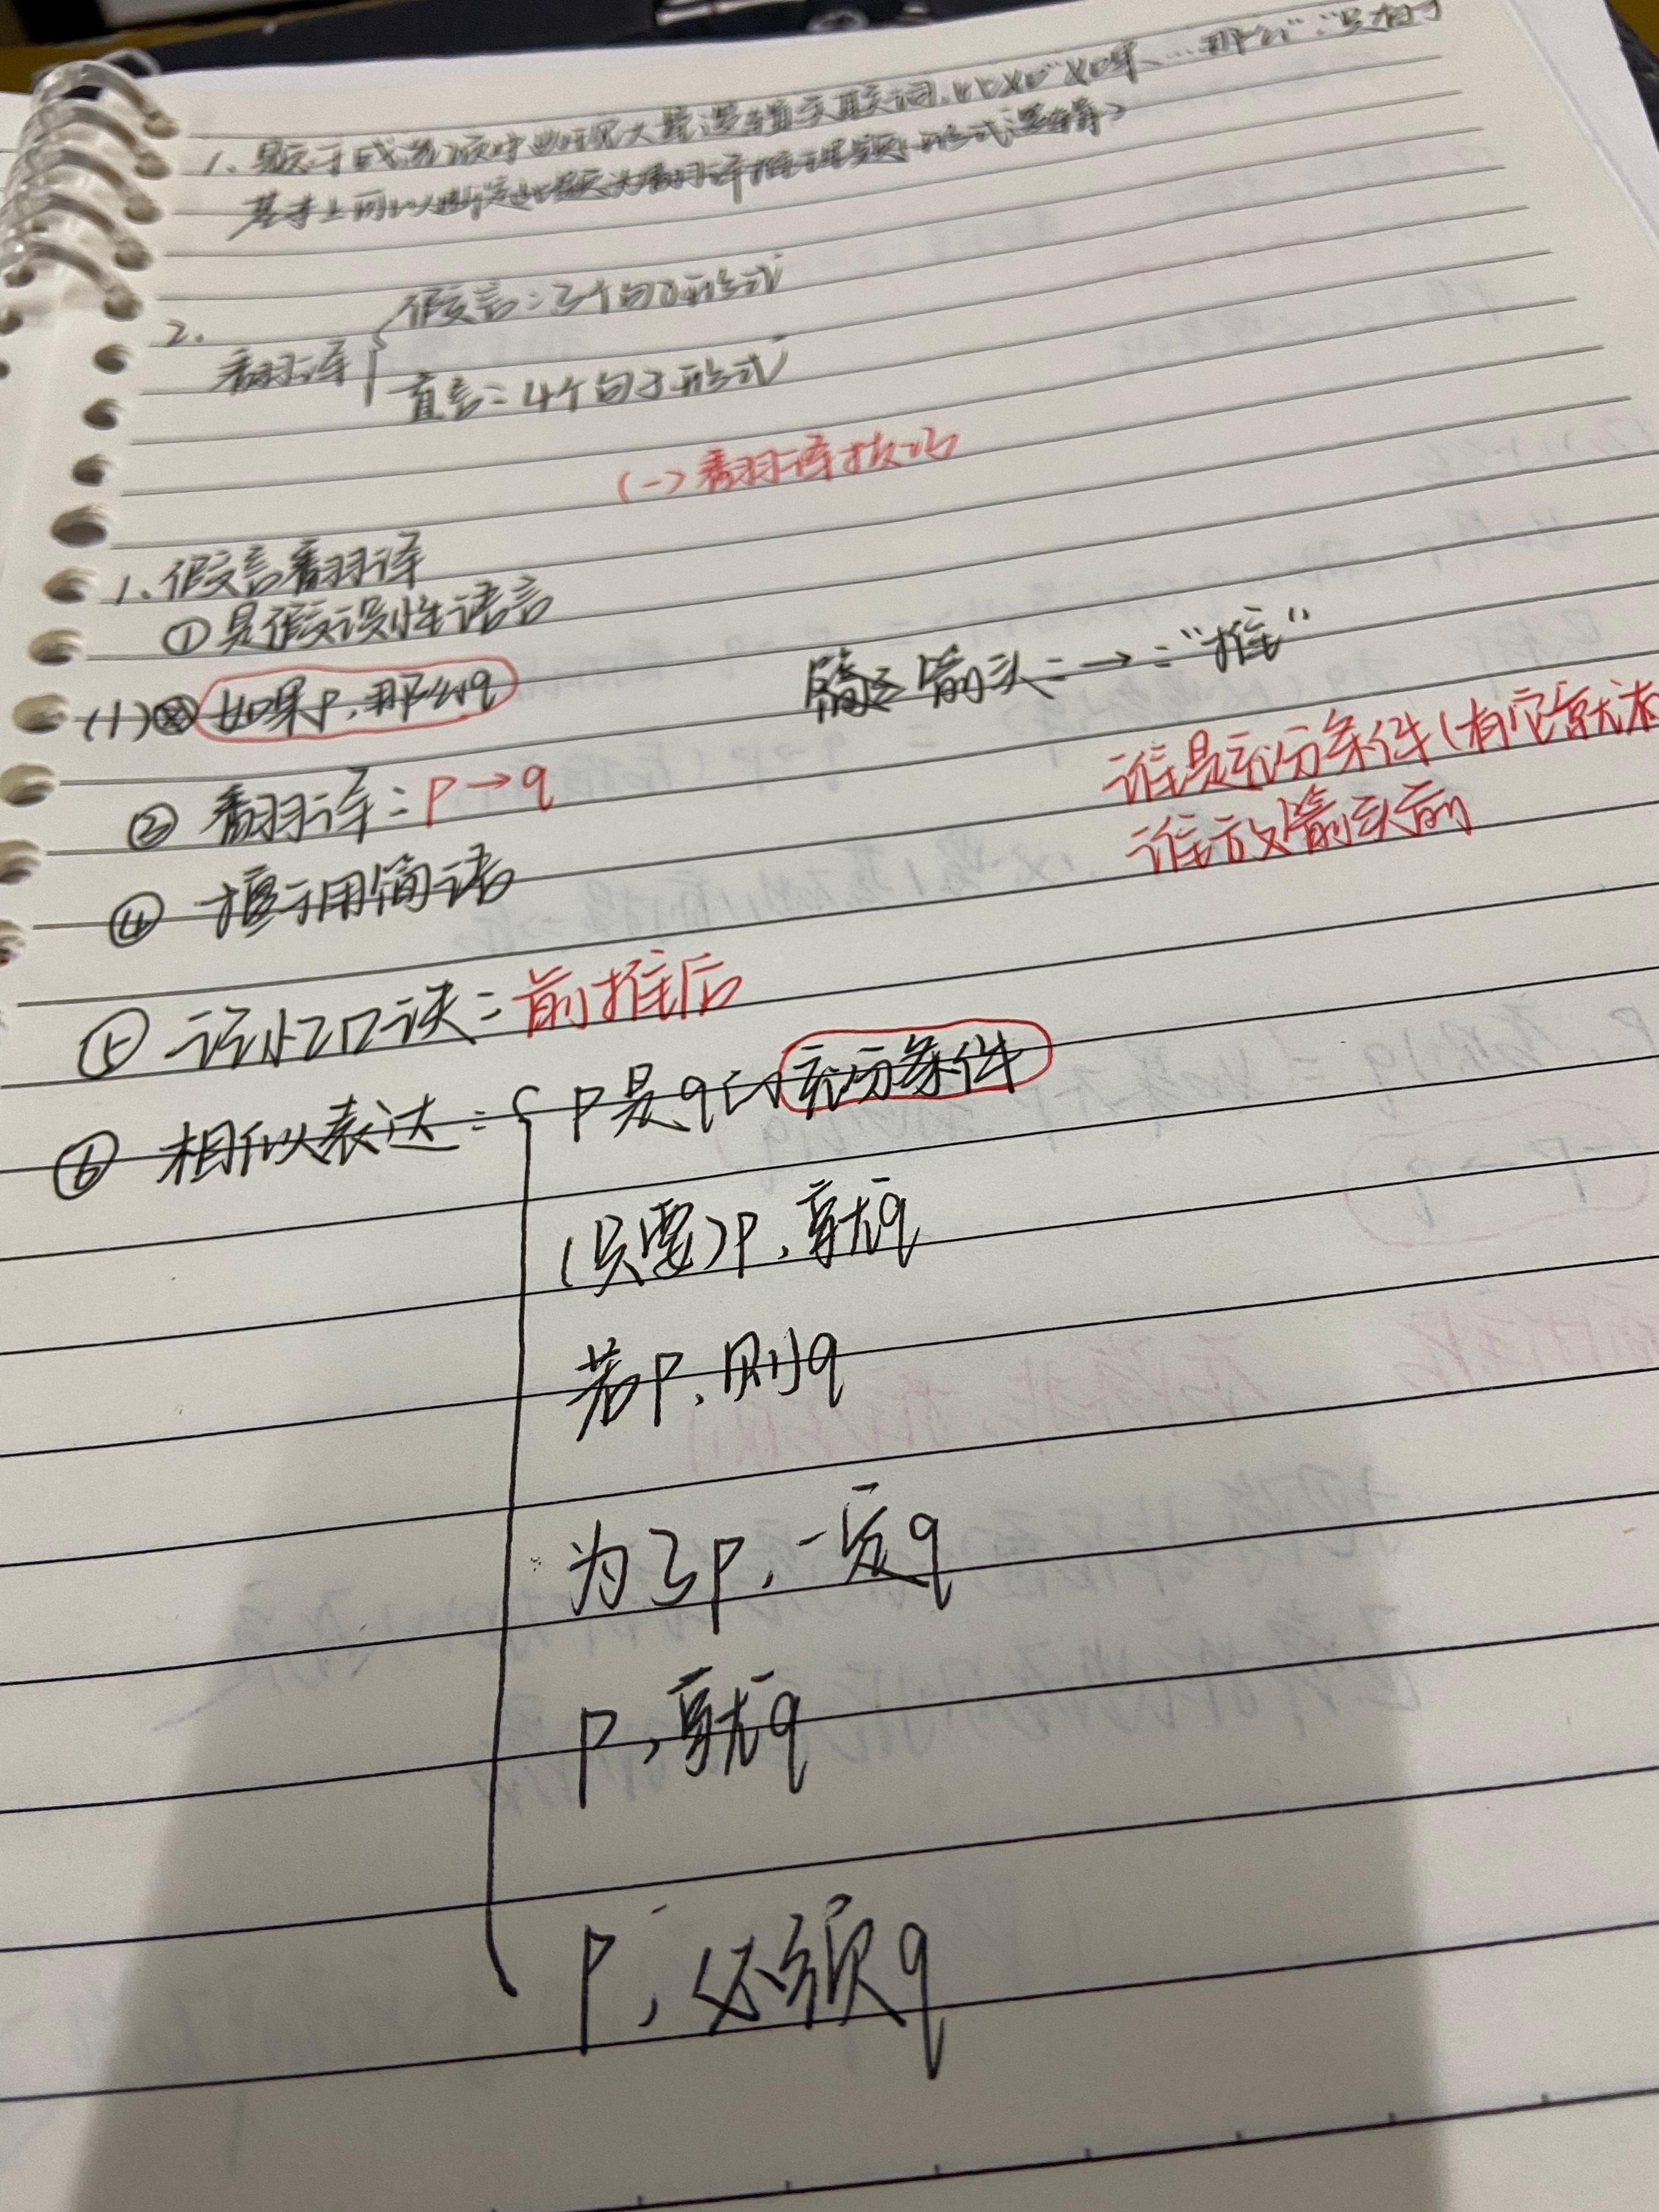 1. 题干或选项中出现大量逻辑关联词,比如"如果……那么""只有才
基本上可以断定此题为翻译推理题(形式逻辑)
2.
翻译
假言:3个句子形式
直言:4个句子形式
(一)翻译技巧
1、假言翻译
①是假设性语言
(1) 如果p,那么q
箭头:→:"推"
② 翻译:p→q
谁是充分条件(有它就
谁放箭头前
④ 提示用简语
⑤ 记忆口诀:前推后
⑥ 相似表达:
p是q的充分条件
(只要)p,就q
若p,则q
为了p,一定q
p,就q
p,必须q